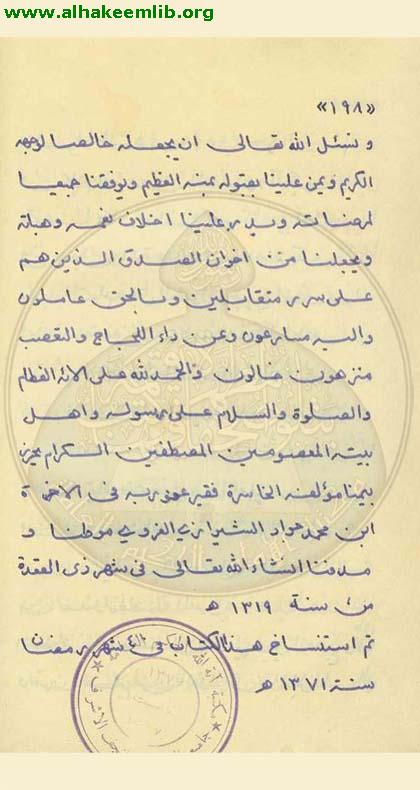 www.alhakeemlib.org
«١٩٨»
و نسئل الله تعالى ان يجعله خالصا لوجهه
الكريم ويمن علينا بقبوله بمنه العظيم ويوفقنا جميعا
لمرضاته ويدر علينا اخلاف نعمه وهباته
ويجعلنا من اخوان الصدق الذين هم
على سرر متقابلين وبالحق عاملون
واليه مسارعون وعن داء اللجاج والتعصب
منزهون خالون والحمد لله على الائه العظام
والصلوة والسلام على رسوله واهل
بيته المعصومين المصطفين الكرام
بيمنا مؤلفه الخاسرة فقير عفو ربه فى الآخرة
ابن محمد جواد الشيرازي الغروي موطنا و
مدفنا انشاء الله تعالى فى شهر ذى القعدة
من سنة ١٣١٩ هـ
تم استنساخ هذا الكتاب فى ٤ شهر رمضان
سنة ١٣٧١ هـ
مكتبة آية الله